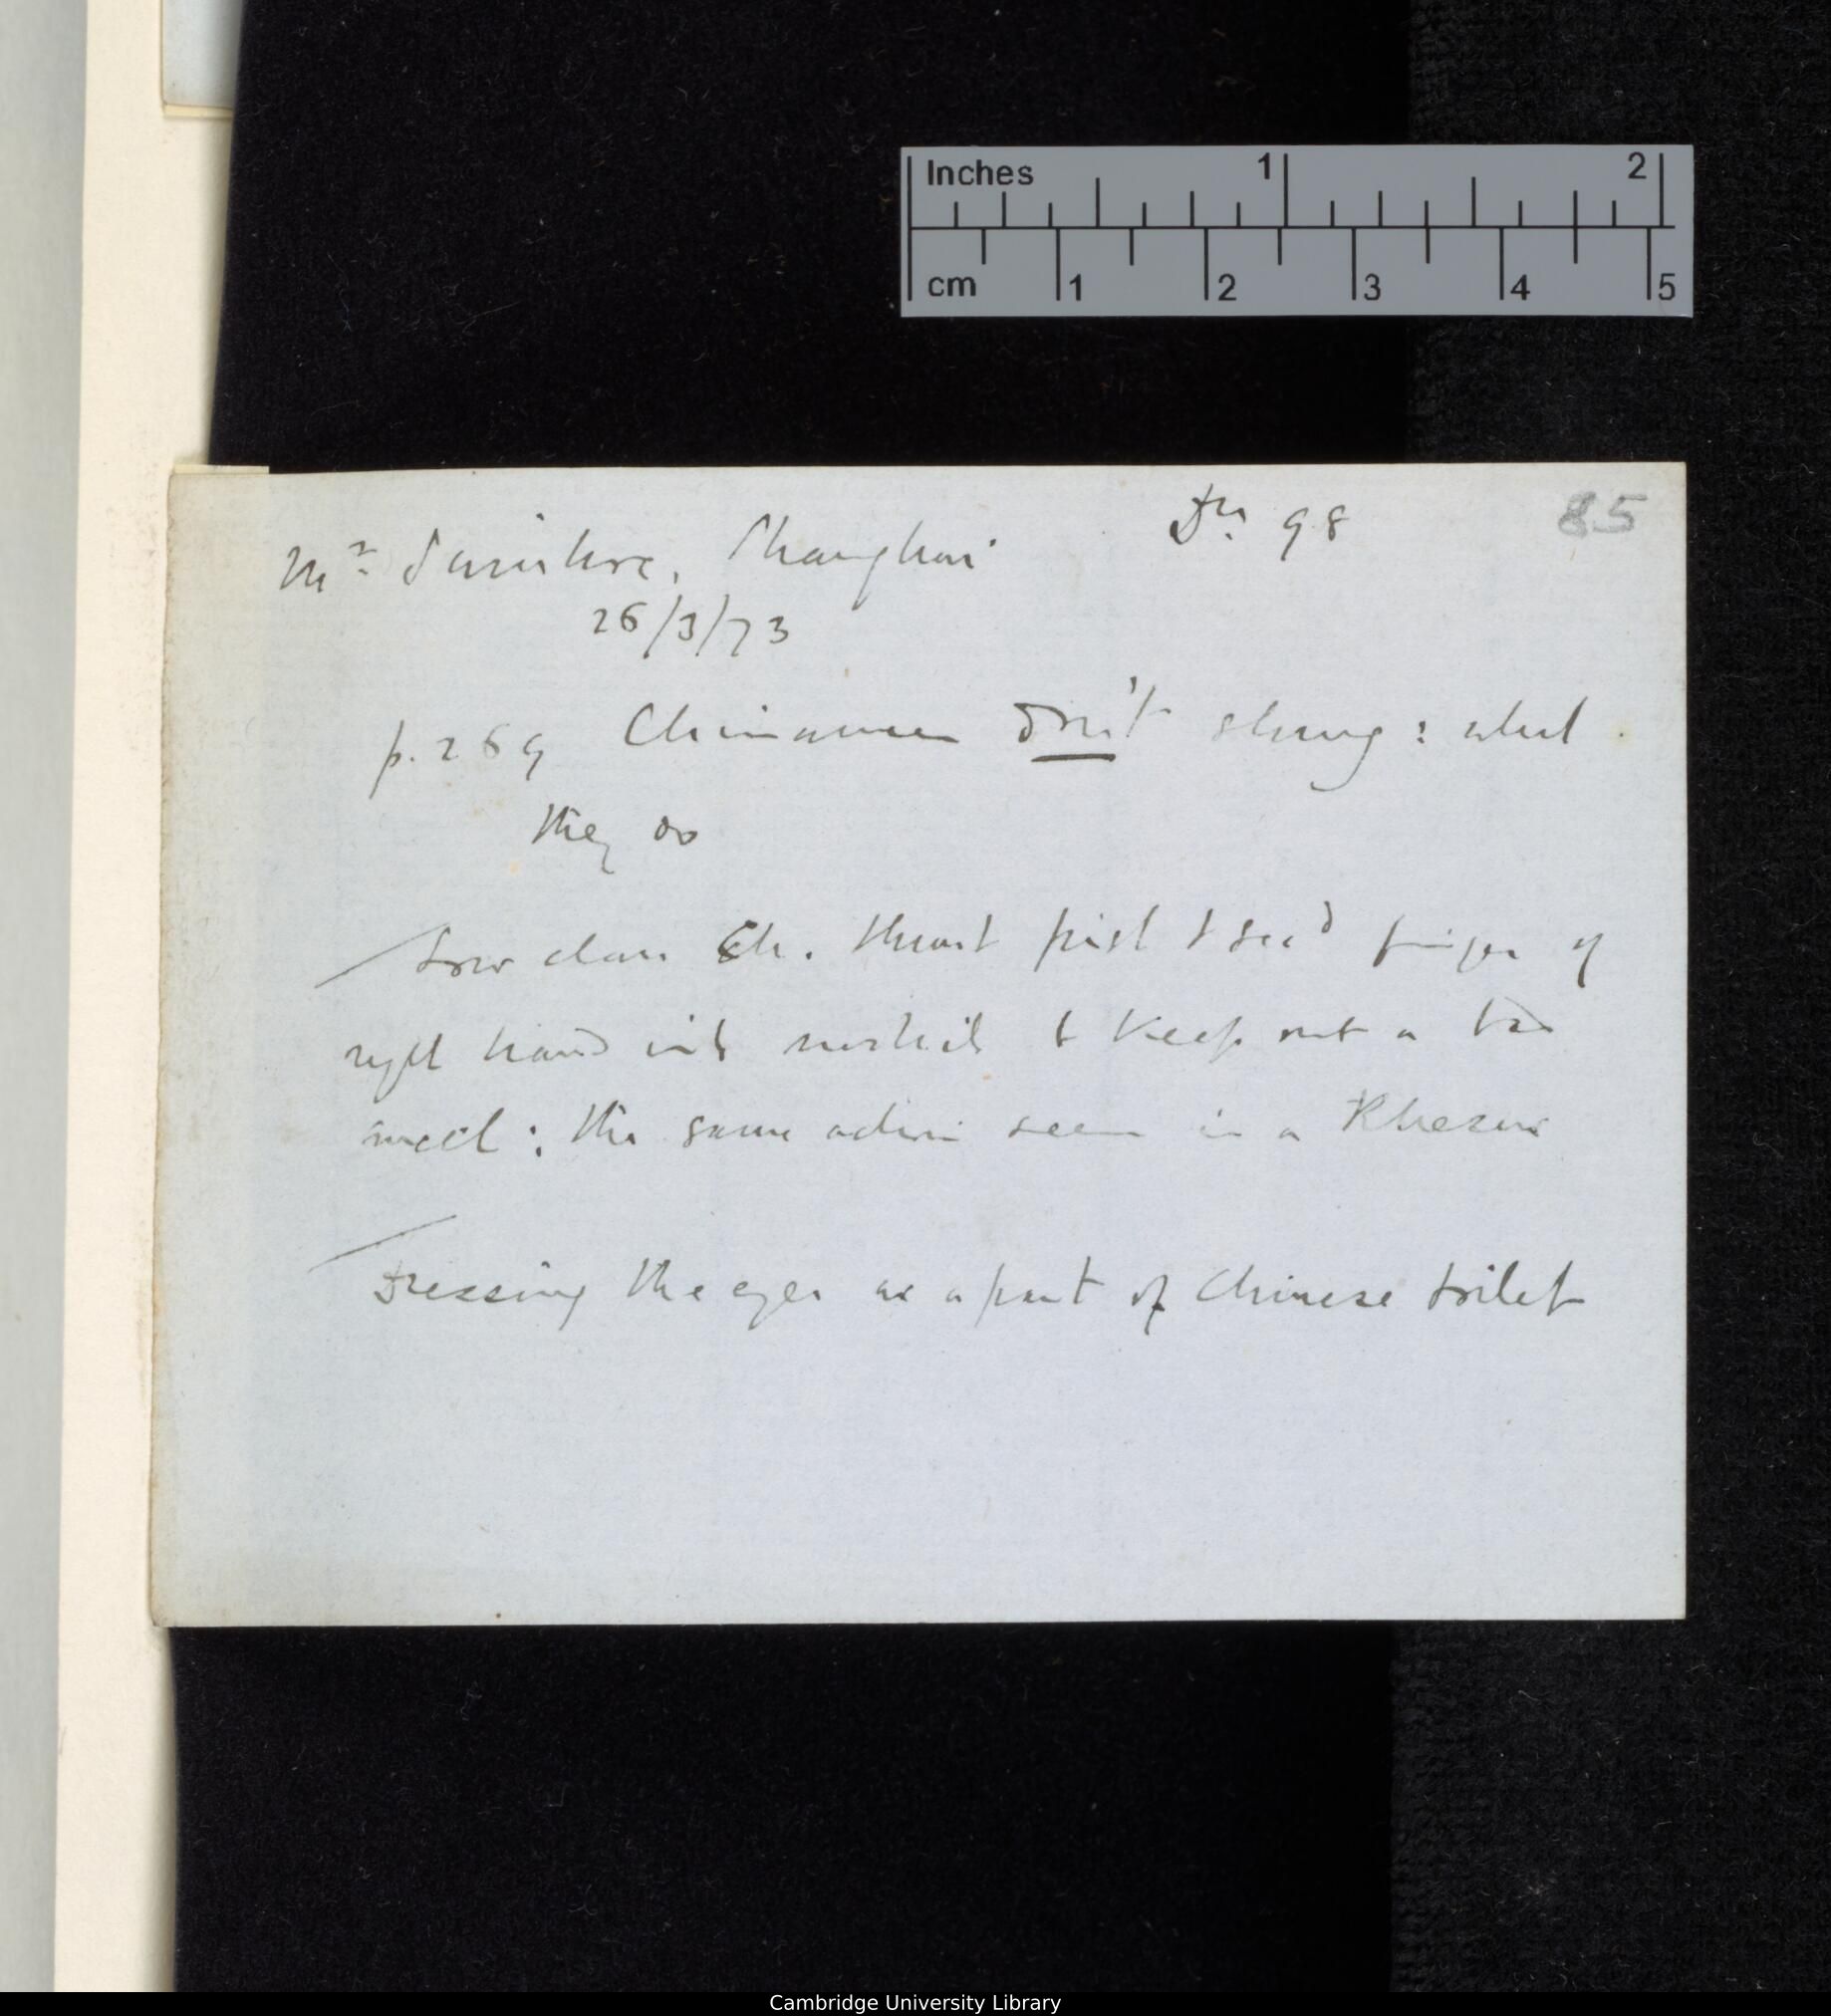 Inches 1 2
cm 1 2 3 4 5
Dr. 98
85
Mr. Swinhoe, Shanghai
26/3/73
p. 269 Chinamen don't shrug: what
they do
Low class Ch. thrust first & sec'd finger of
right hand into nostrils to keep out a bad
smell: the same action seen in a Rhesus
Dressing the eyes as a part of Chinese toilet
Cambridge University Library